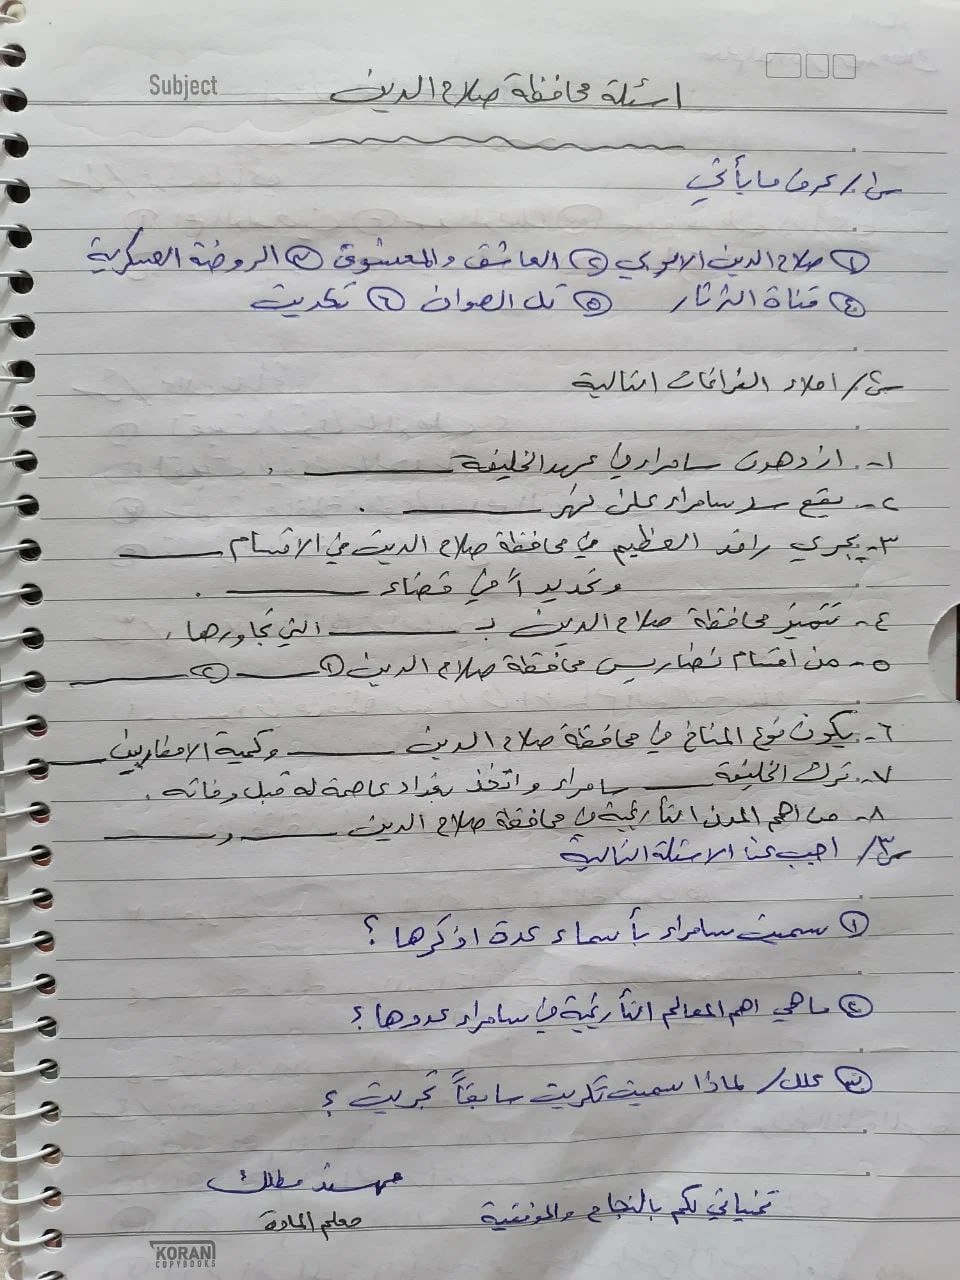 Subject
اسئلة محافظة صلاح الدين
س١/ عرف ما يأتي
① صلاح الدين الايوبي ② العاشق والمعشوق ③ الروضة العسكرية
④ قناة الثرثار ⑤ تل الصوان ⑥ تكريت
س٢/ املاء الفراغات التالية
١- ازدهرت سامراء في عهد الخليفة ______ .
٢- يقع سد سامراء على نهر ______ .
٣- يجري رافد العظيم في محافظة صلاح الدين في الاقسام ______
وتحديداً في قضاء ______ .
٤- تتميز محافظة صلاح الدين بـ ______ التي تجاورها .
٥- من اقسام تضاريس محافظة صلاح الدين ① ______ ② ______
٦- يكون نوع المناخ في محافظة صلاح الدين ______ وكمية الامطار بين ______
٧- ترك الخليفة ______ سامراء واتخذ بغداد عاصمة له قبل وفاته .
٨- من اهم المدن التأريخية في محافظة صلاح الدين ______ و ______
س٣/ اجب عن الاسئلة التالية
① سميت سامراء بأسماء عدة اذكرها ؟
② ما هي اهم المعالم التأريخية في سامراء عددها ؟
③ علل/ لماذا سميت تكريت سابقاً تجريت ؟
مهند مطلك
تمنياتي لكم بالنجاح والموفقية
معلم المادة
KORAN
COPYBOOKS